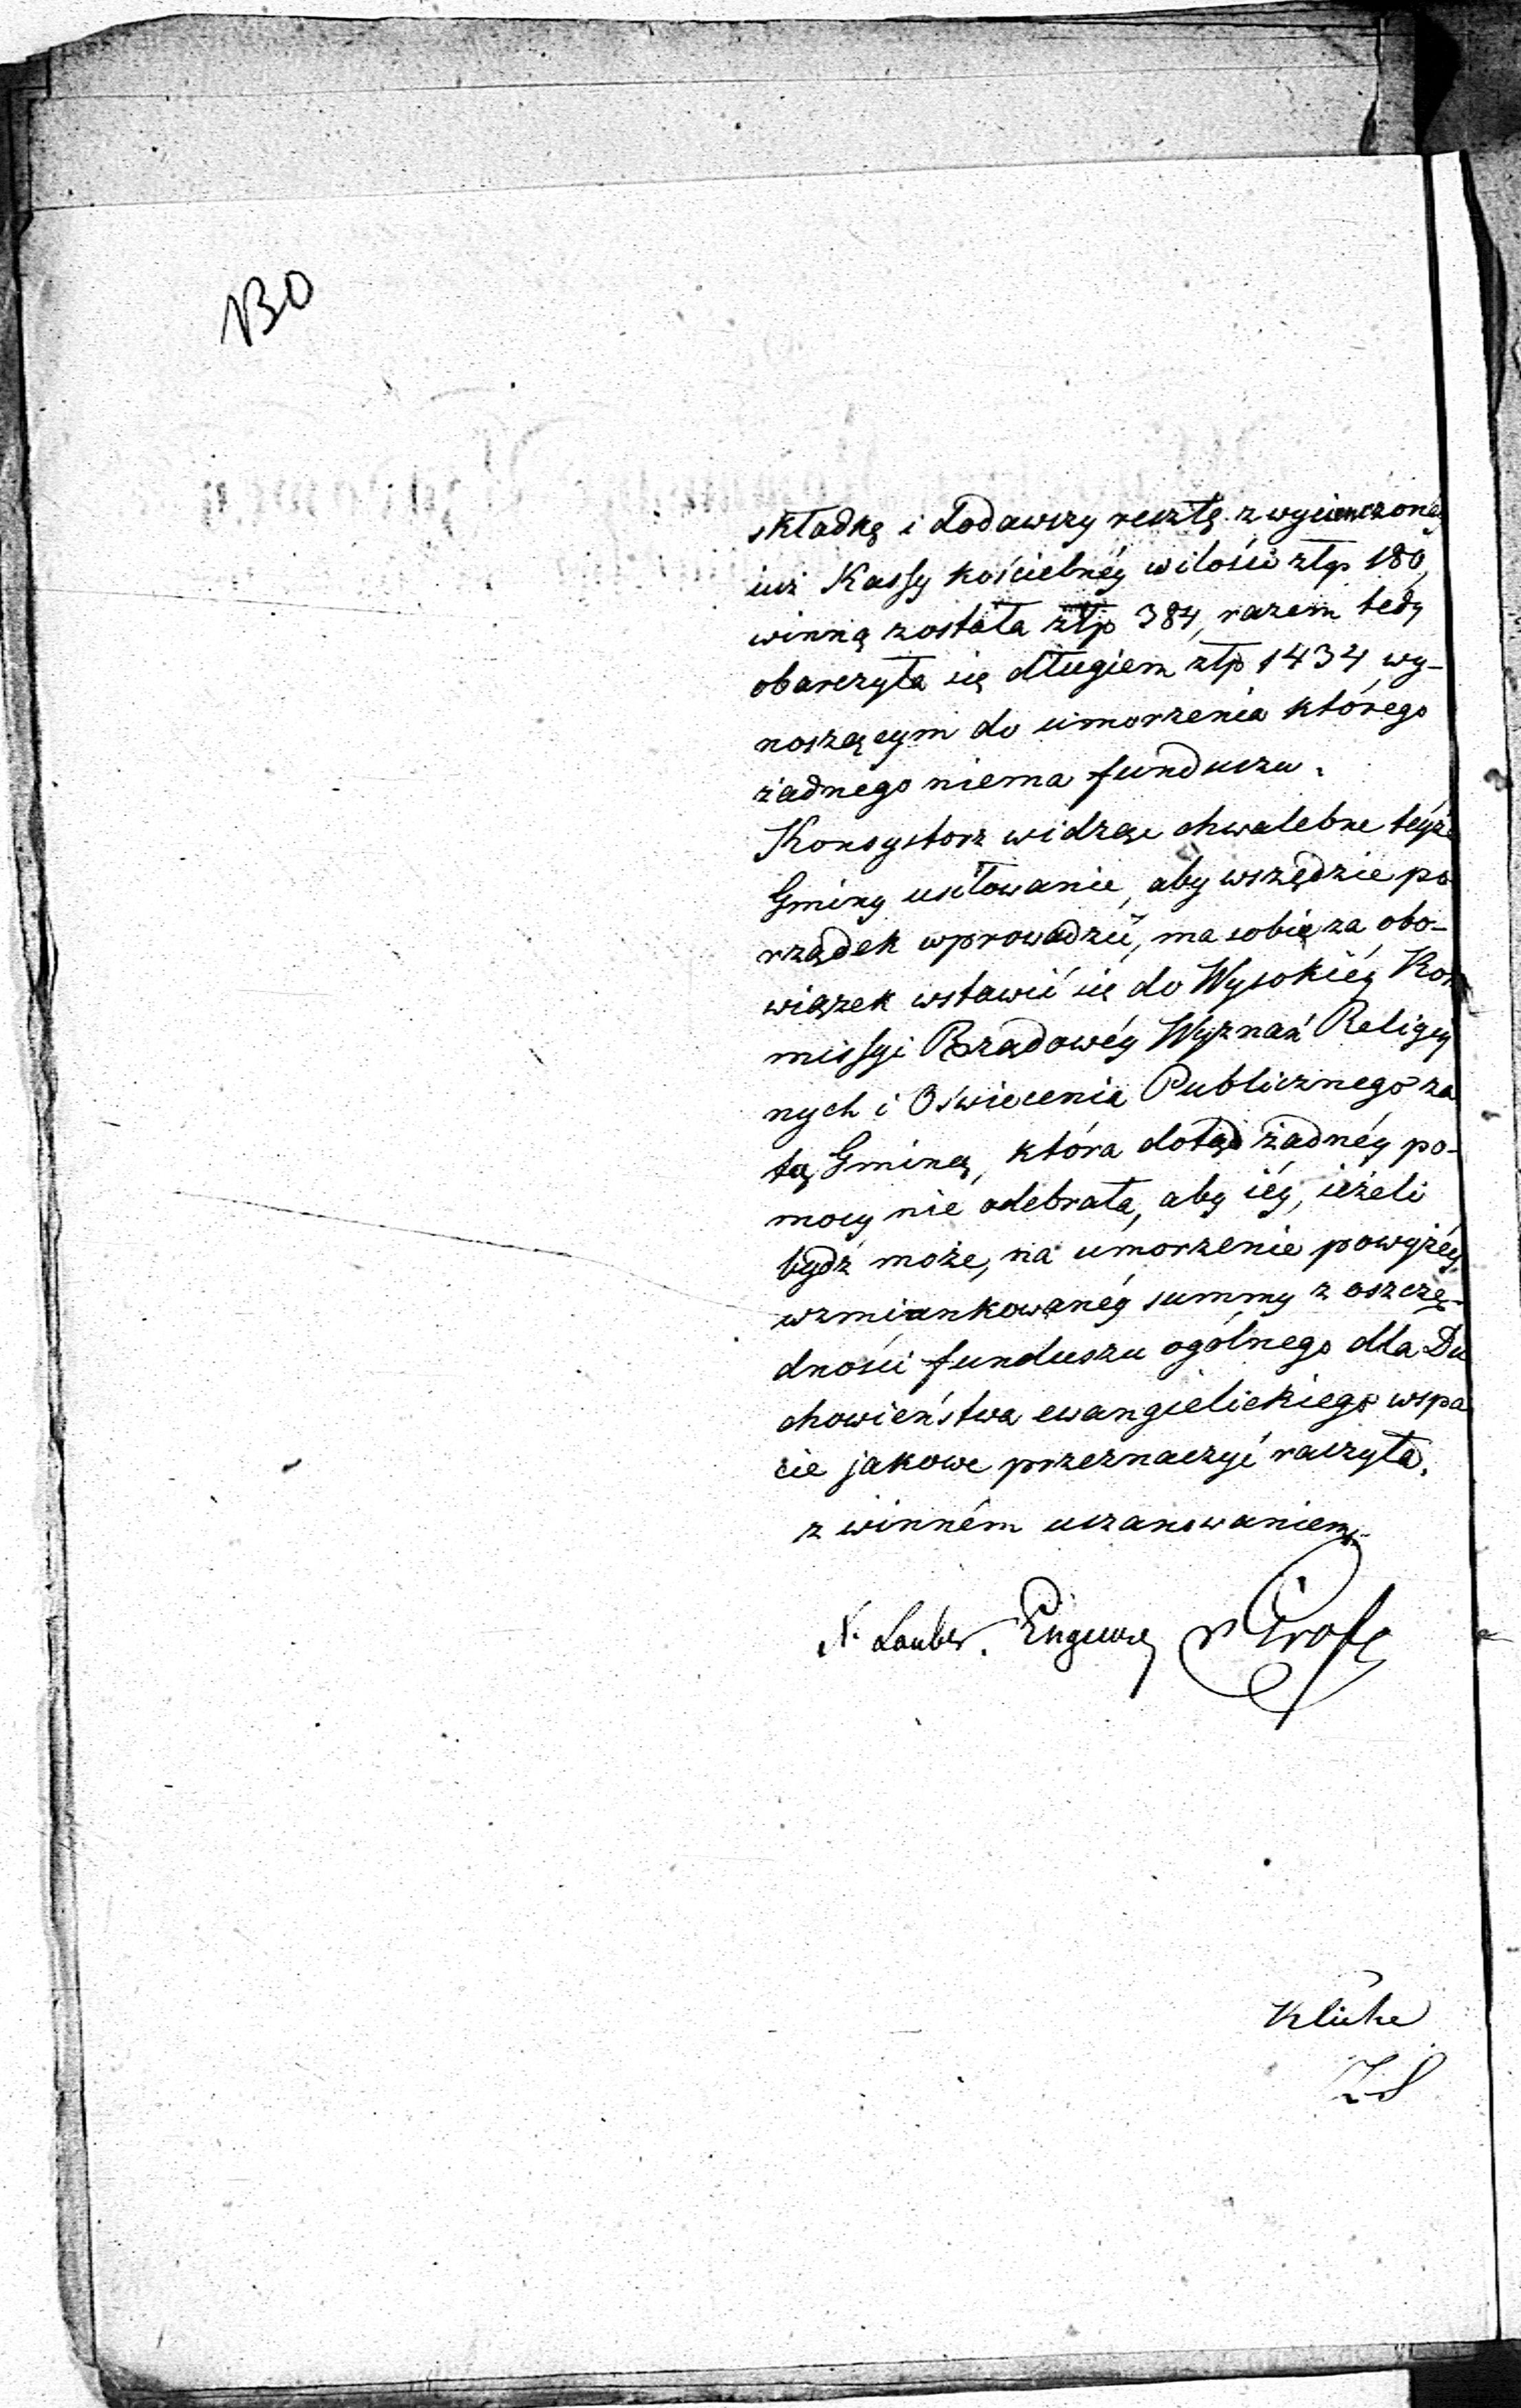 130
składkę i dodawszy resztę z wycienczonéy
iuż Kassy kościelnéy wilości złp 180,
winną została złp 384, razem tedy
obarczyła się długiem złp 1434 wy-
noszącym do umorzenia którego
żadnego niema funduszu.
Konsystorz widząc chwalebne téyże
Gminy usiłowanie, aby wszędzie po
rządek wprowadzić, ma sobie za obo-
wiązek wstawić się do Wysokiéy Kom
missyi Rządowéy Wyznań Religiy
nych i Oświecenia Publicznego za
tą Gminą, która dotąd żadnéy po-
mocy nie odebrała, aby iéy, ieżeli
bydź może, na umorzenie powyżéy
wzmiankowanéy summy z oszczę-
dności funduszu ogólnego dla Du
chowieństwa ewangielickiego wspar
cie jakowe przeznaczyć raczyła.
z winném uszanowaniem.
Lauber.
ZS